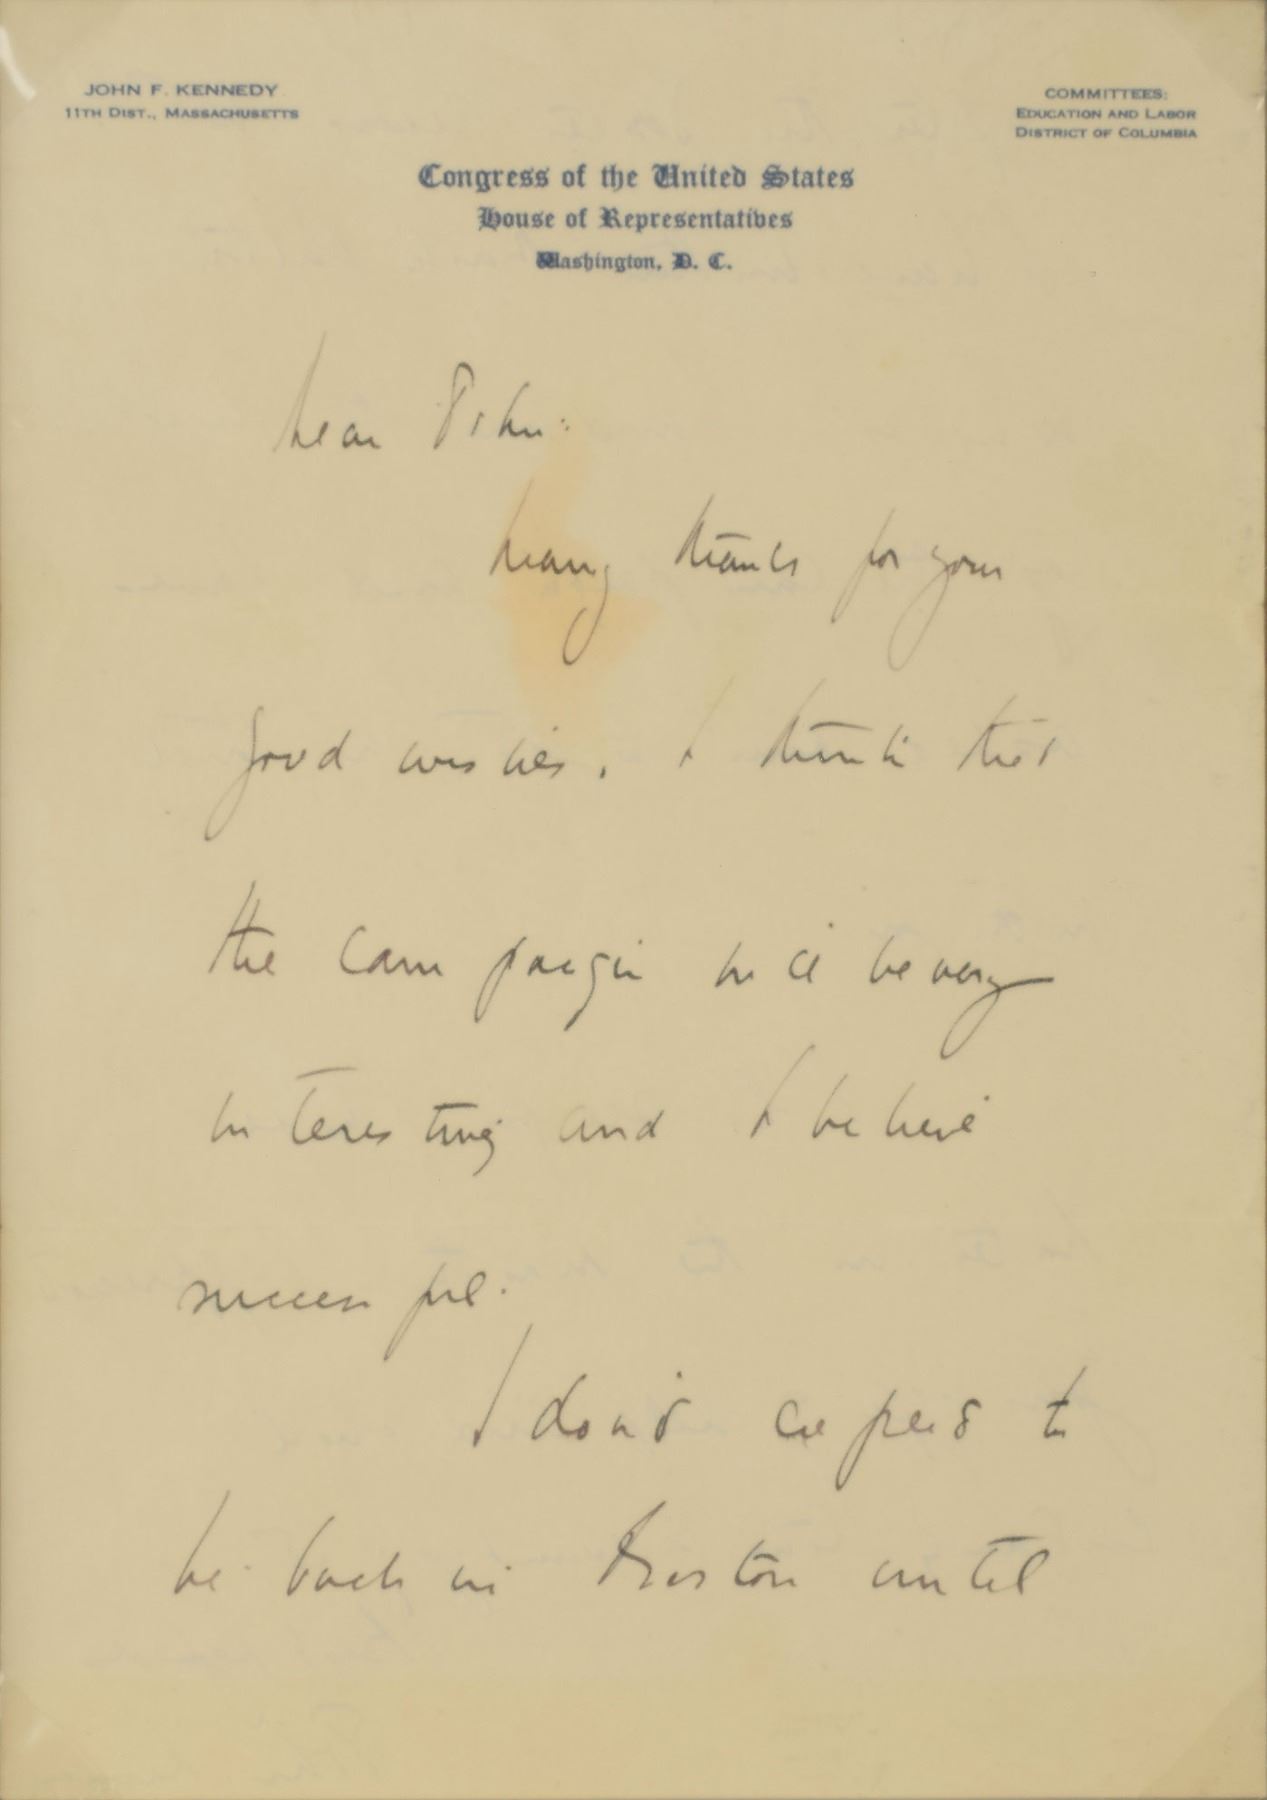 JOHN F. KENNEDY
11TH DIST., MASSACHUSETTS
COMMITTEES:
EDUCATION AND LABOR
DISTRICT OF COLUMBIA
Congress of the United States
House of Representatives
Washington, D. C.
Dear John:
Many thanks for your
good wishes. I think that
the campaign will be very
interesting and I believe
successful.
I don't expect to
be back in Boston until